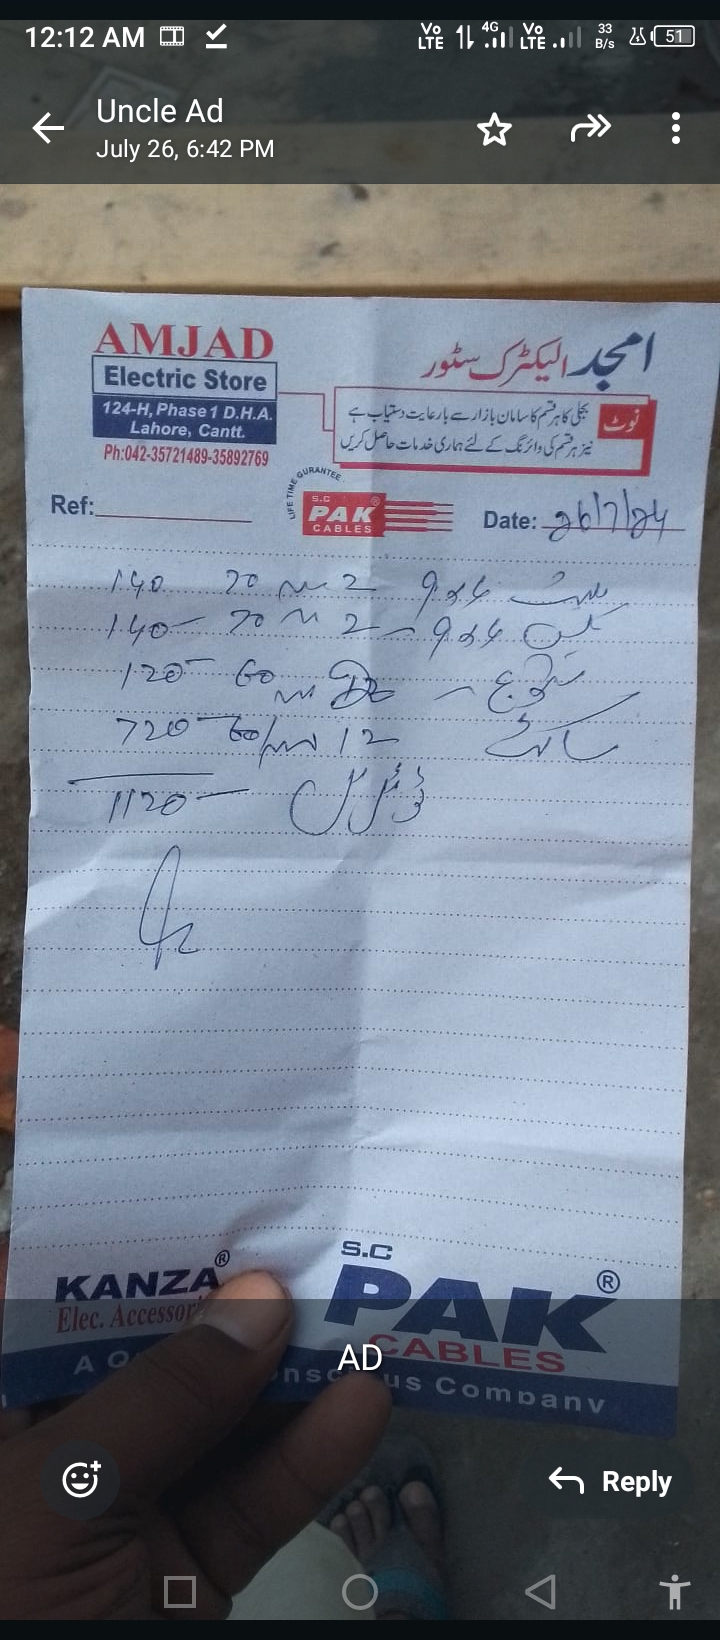 12:12 AM
Vo LTE 4G Vo LTE 33 B/s 51
Uncle Ad
July 26, 6:42 PM
AMJAD
Electric Store
124-H, Phase 1 D.H.A.
Lahore, Cantt.
Ph:042-35721489-35892769
امجد الیکٹرک سٹور
نوٹ
بجلی کا ہر قسم کا سامان بازار سے بارعایت دستیاب ہے
نیز ہر قسم کی وائرنگ کے لئے ہماری خدمات حاصل کریں
Ref:
LIFE TIME GURANTEE
S.C ®
PAK
CABLES
Date: 26/7/24
140 70 2 9x4
140 70 2 9x4
120 60
720 60 12 ساکٹ
1120
KANZA®
Elec. Accessor
S.C
PAK®
CABLES
A Q nsc us Company
AD
Reply